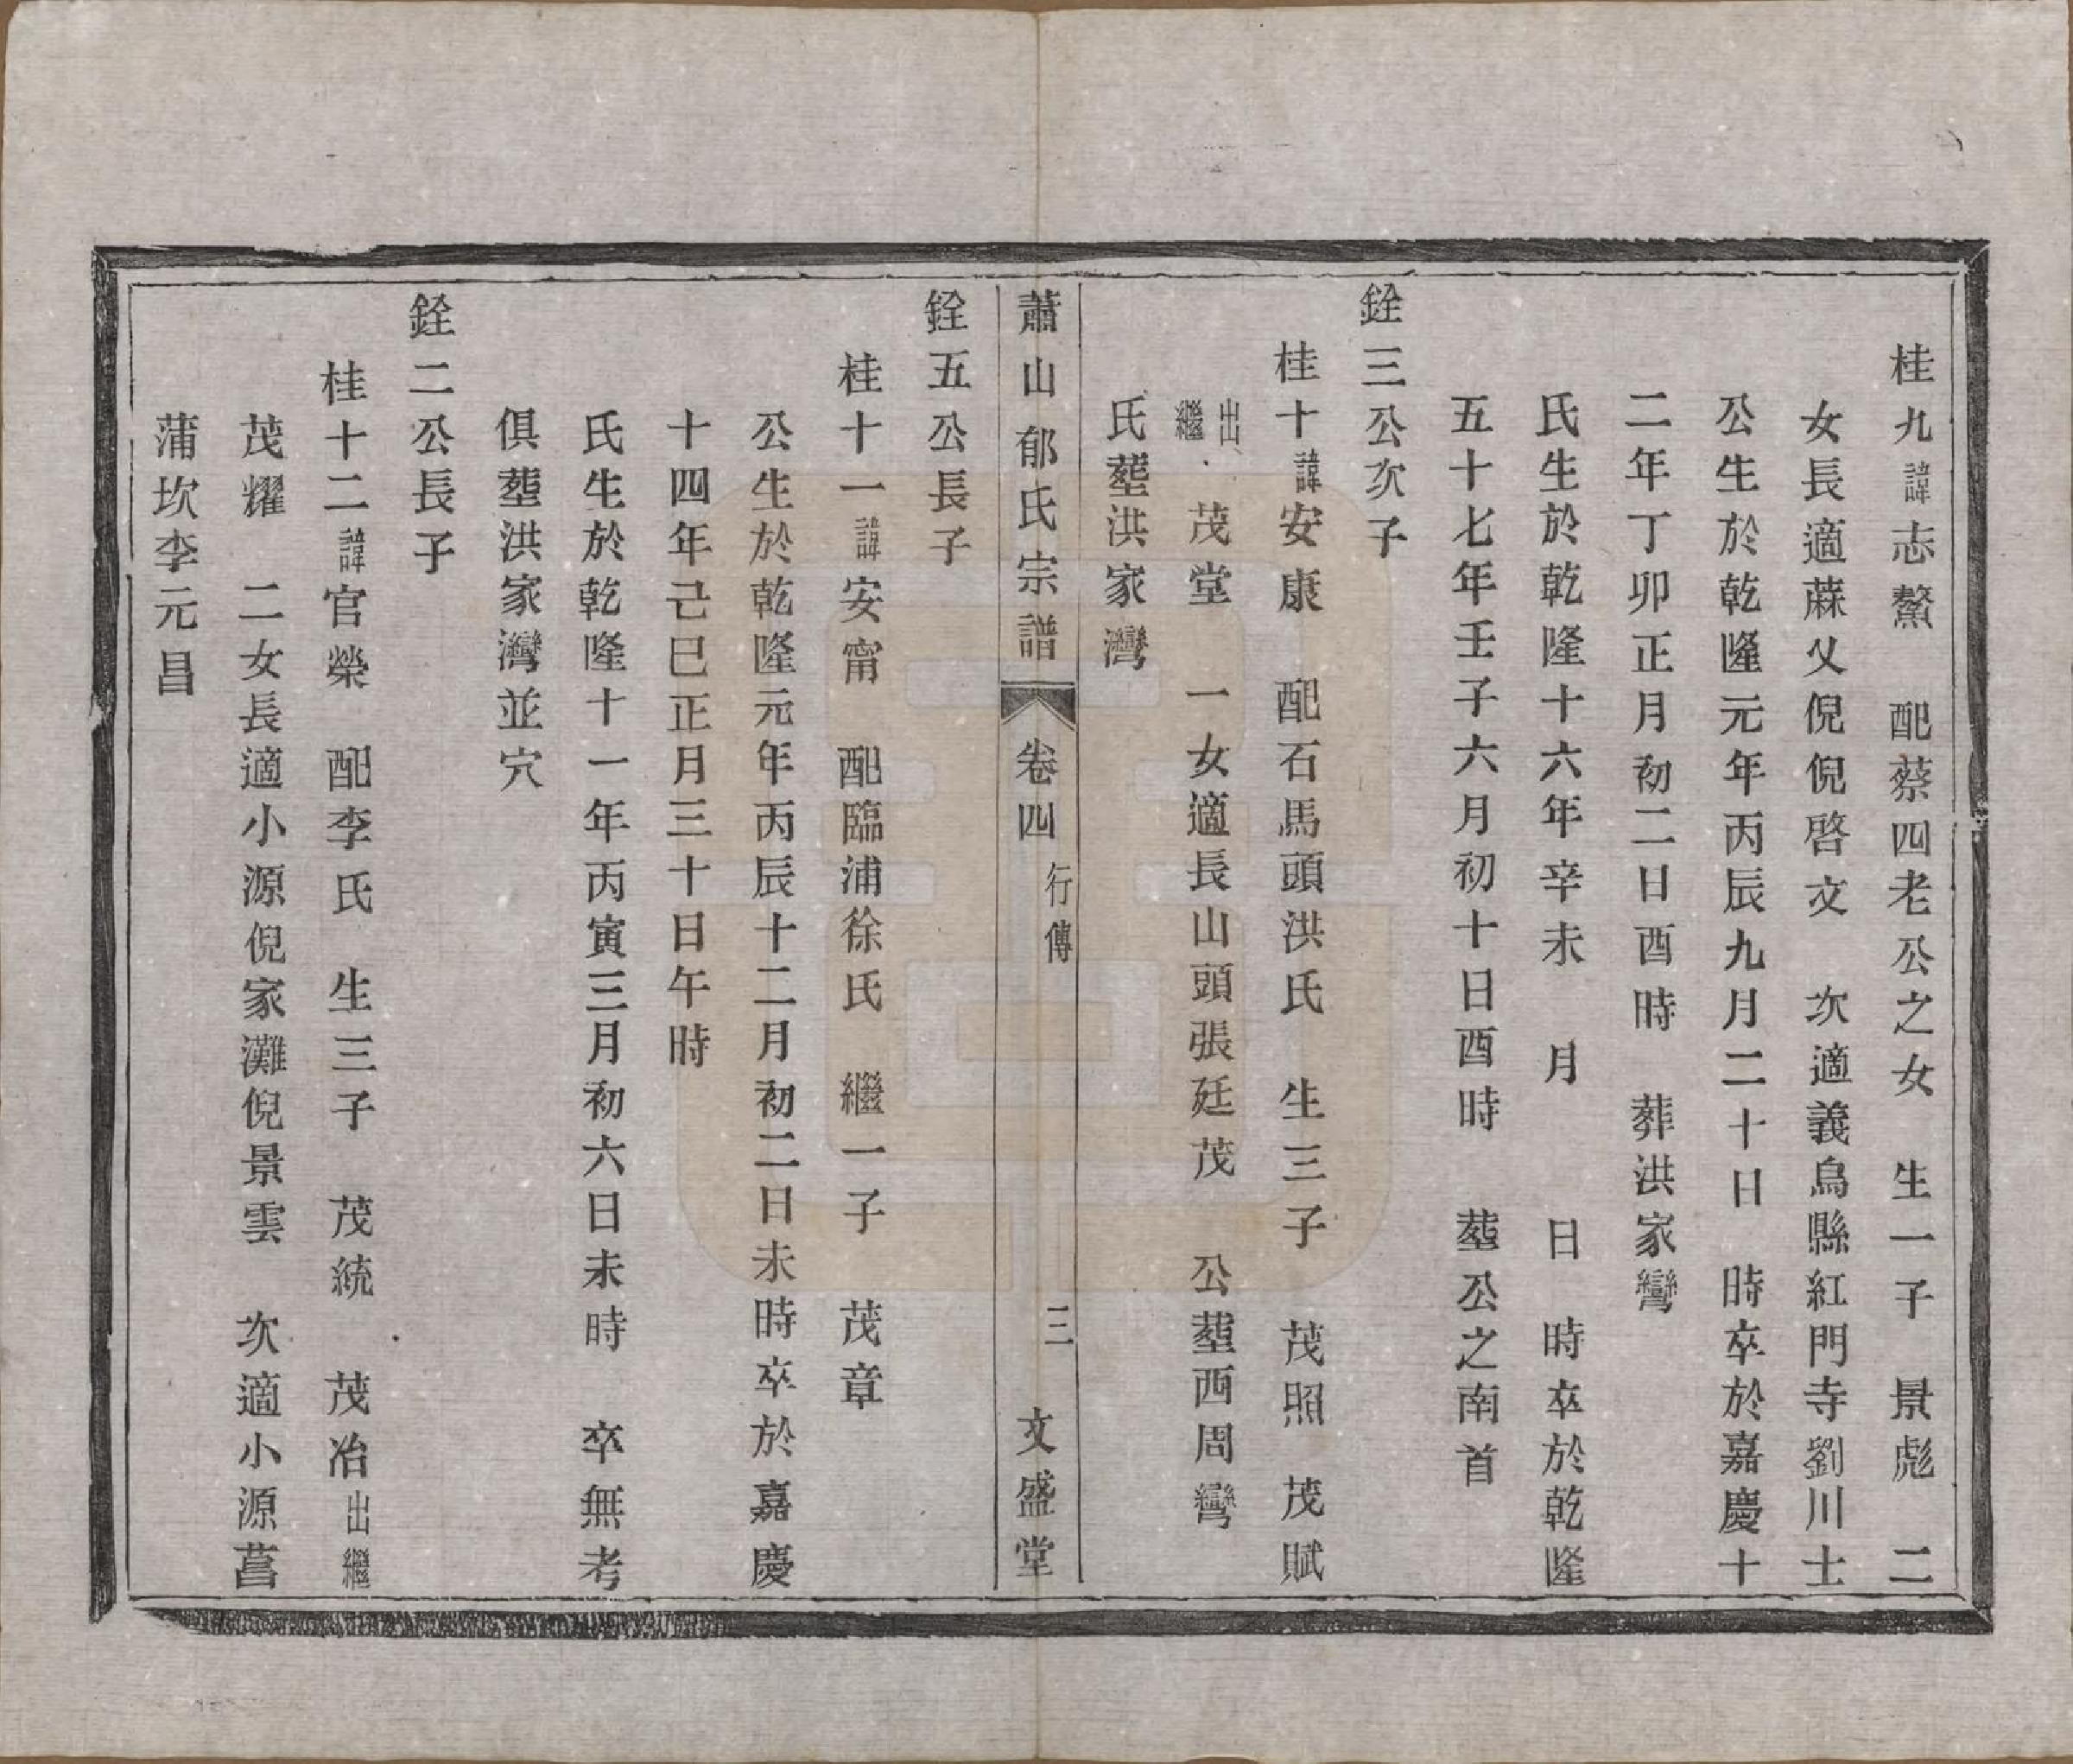 桂九諱志鰲　配蔡四老公之女　生一子　景彪　二
女長適蔴乂倪倪啓文　次適義烏縣紅門寺劉川士
公生於乾隆元年丙辰九月二十日　時卒於嘉慶十
二年丁卯正月初二日酉時　葬洪家灣
氏生於乾隆十六年辛未　月　　日　時卒於乾隆
五十七年壬子六月初十日酉時　塟公之南首
銓三公次子
桂十諱安康　配石馬頭洪氏　生三子　茂照　茂賦
出繼　茂堂　一女適長山頭張廷茂　公塟西周灣
氏塟洪家灣
蕭山郁氏宗譜　卷四　行傳　三　文盛堂
銓五公長子
桂十一諱安甯　配臨浦徐氏　繼一子　茂章
公生於乾隆元年丙辰十二月初二日未時卒於嘉慶
十四年己巳正月三十日午時
氏生於乾隆十一年丙寅三月初六日未時　卒無考
俱塟洪家灣並穴
銓二公長子
桂十二諱官榮　配李氏　生三子　茂統　茂冶出繼
茂耀　二女長適小源倪家灘倪景雲　次適小源菖
蒲坎李元昌